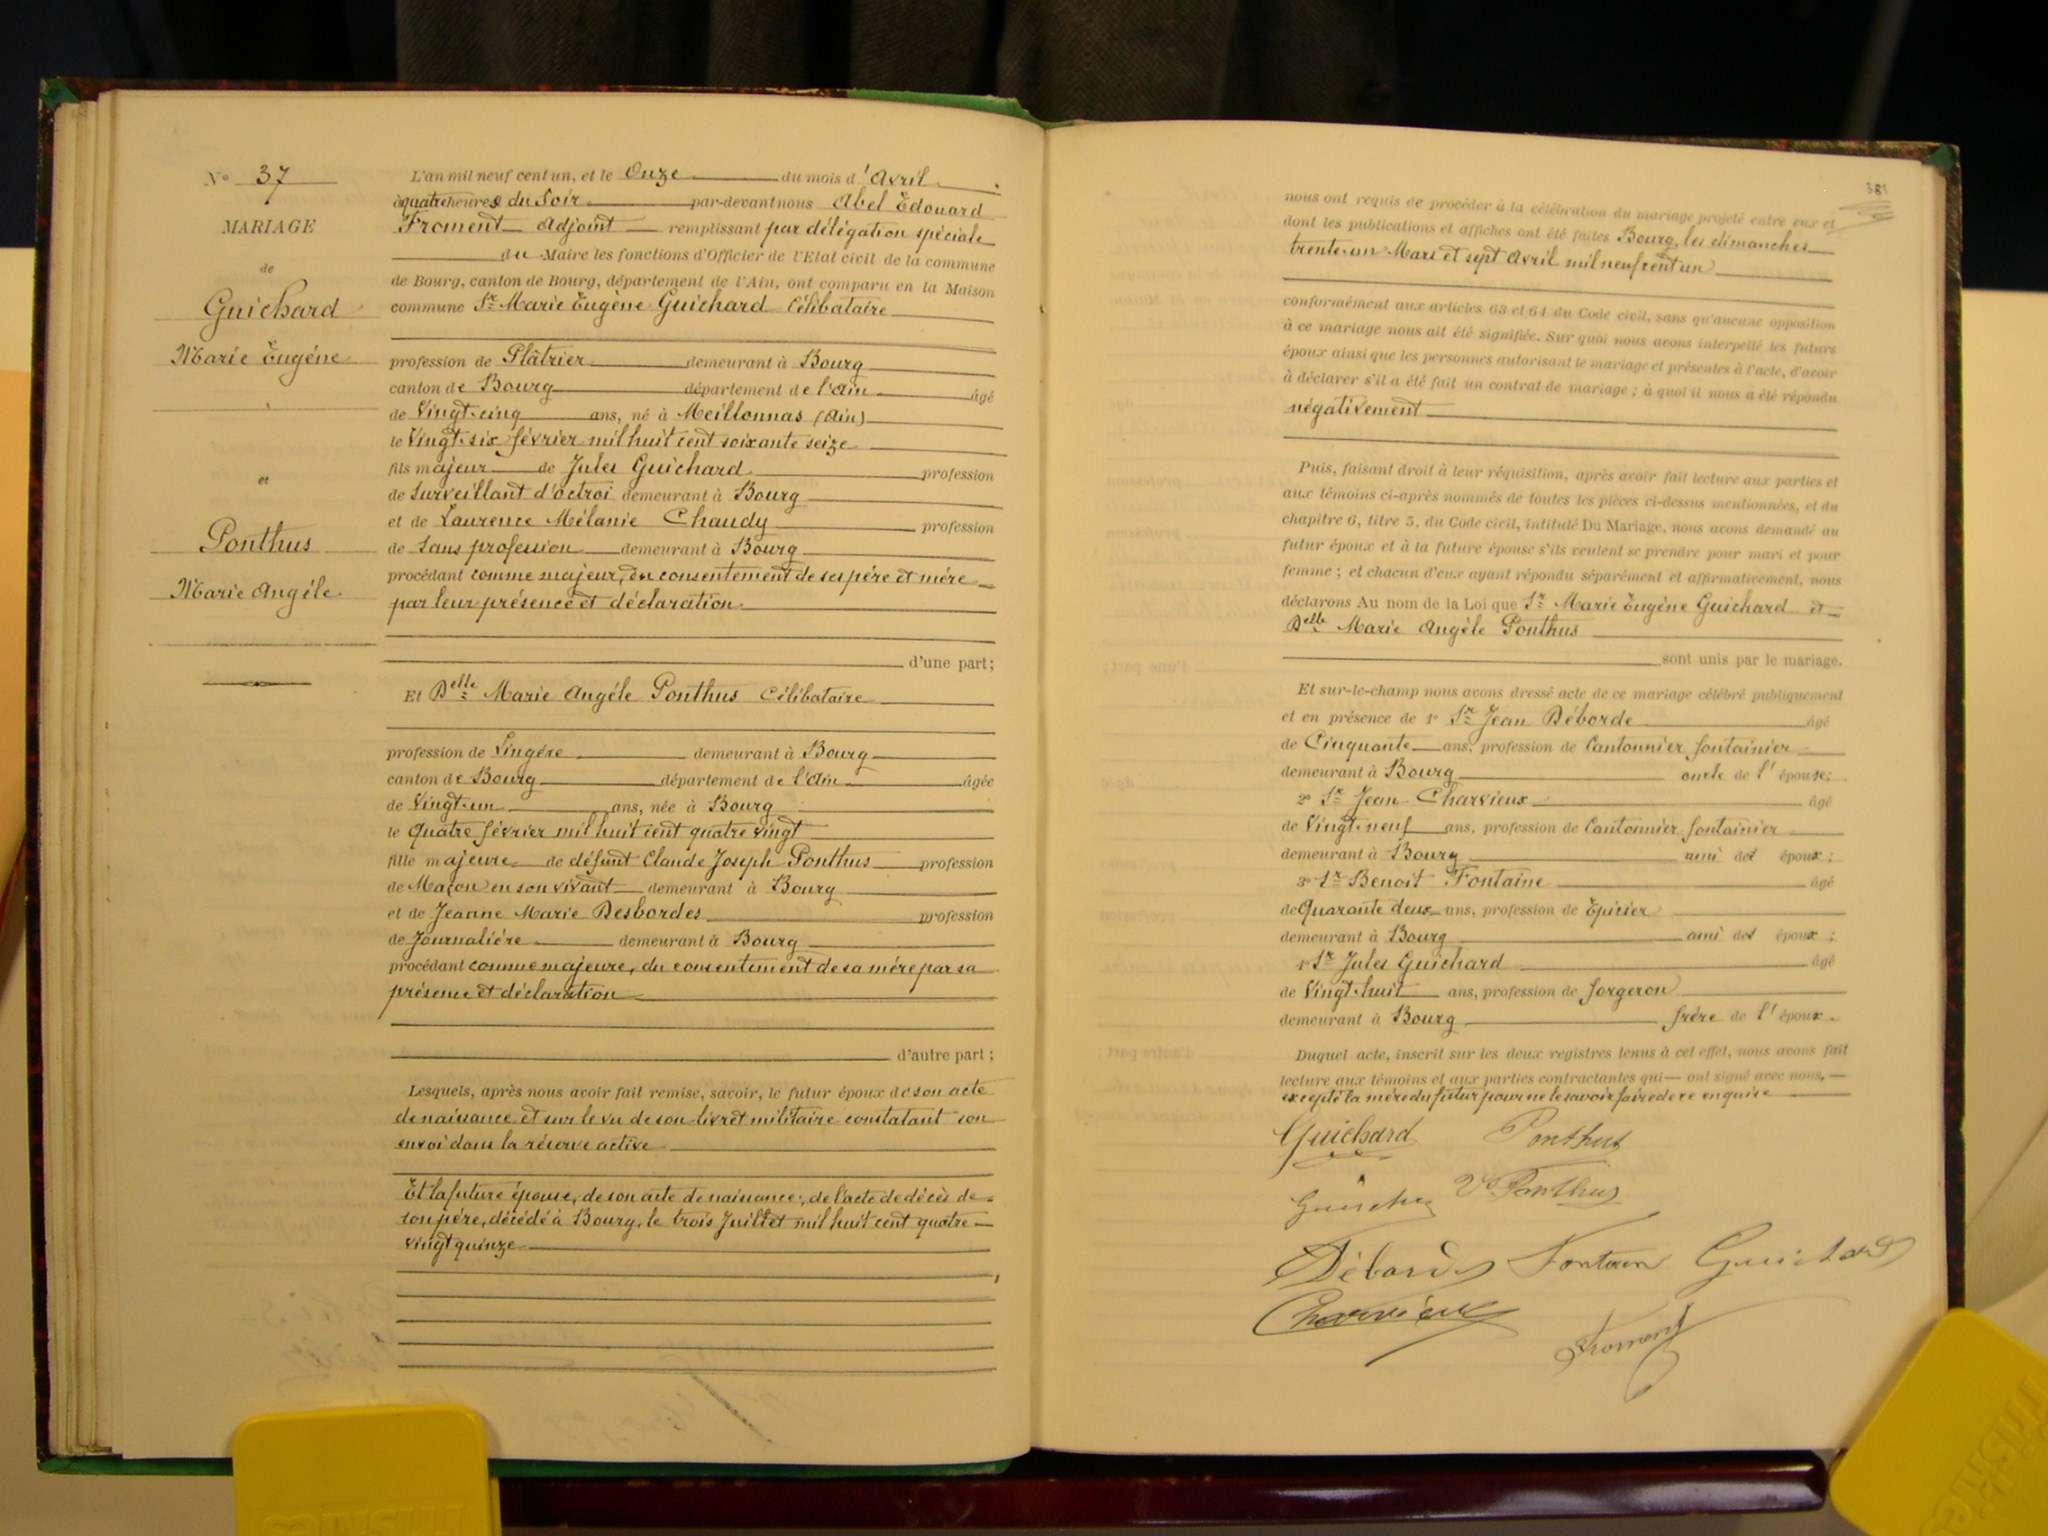 N° 37
MARIAGE
de
Guichard
Marie Eugène
et
Ponthus
Marie Angèle
L'an mil neuf cent un, et le Onze du mois d'Avril
à quatre heures du Soir par-devant nous Abel Edouard
Froment Adjoint remplissant par délégation spéciale
du Maire les fonctions d'Officier de l'Etat civil de la commune
de Bourg, canton de Bourg, département de l'Ain, ont comparu en la Maison
commune Sr Marie Eugène Guichard Célibataire
profession de Plâtrier demeurant à Bourg
canton de Bourg département de l'Ain âgé
de Vingt-cinq ans, né à Meillonnas (Ain)
le Vingt-six février mil huit cent soixante seize
fils majeur de Jules Guichard profession
de Surveillant d'octroi demeurant à Bourg
et de Laurence Mélanie Chaudy profession
de Sans profession demeurant à Bourg
procédant comme majeur, du consentement de ses père et mère
par leur présence et déclaration.
d'une part;
Et Delle Marie Angèle Ponthus Célibataire
profession de Lingère demeurant à Bourg
canton de Bourg département de l'Ain âgée
de Vingt-un ans, née à Bourg
le Quatre février mil huit cent quatre vingt
fille majeure de défunt Claude Joseph Ponthus profession
de Maçon en son vivant demeurant à Bourg
et de Jeanne Marie Desbordes profession
de Journalière demeurant à Bourg
procédant comme majeure, du consentement de sa mère par sa
présence et déclaration
d'autre part;
Lesquels, après nous avoir fait remise, savoir, le futur époux de son acte
de naissance et sur le vu de son livret militaire constatant son
envoi dans la réserve active
Et la future épouse, de son acte de naissance, de l'acte de décès de
son père, décédé à Bourg, le trois Juillet mil huit cent quatre
vingt quinze
381
nous ont requis de procéder à la célébration du mariage projeté entre eux et
dont les publications et affiches ont été faites Bourg, les dimanches
trente-un Mars et sept Avril mil neuf cent un
conformément aux articles 63 et 64 du Code civil, sans qu'aucune opposition
à ce mariage nous ait été signifiée. Sur quoi nous avons interpellé les futurs
époux ainsi que les personnes autorisant le mariage et présentes à l'acte, d'avoir
à déclarer s'il a été fait un contrat de mariage; à quoi il nous a été répondu
négativement
Puis, faisant droit à leur réquisition, après avoir fait lecture aux parties et
aux témoins ci-après nommés de toutes les pièces ci-dessus mentionnées, et du
chapitre 6, titre 5, du Code civil, intitulé Du Mariage, nous avons demandé au
futur époux et à la future épouse s'ils veulent se prendre pour mari et pour
femme; et chacun d'eux ayant répondu séparément et affirmativement, nous
déclarons Au nom de la Loi que Sr Marie Eugène Guichard et
Delle Marie Angèle Ponthus
sont unis par le mariage.
Et sur-le-champ nous avons dressé acte de ce mariage célébré publiquement
et en présence de 1° Sr Jean Déborde âgé
de Cinquante ans, profession de Cantonnier fontainier
demeurant à Bourg oncle de l'épouse;
2° Sr Jean Charvieux âgé
de Vingt-neuf ans, profession de Cantonnier fontainier
demeurant à Bourg ami des époux;
3° Sr Benoit Fontaine âgé
de Quarante deux ans, profession de Epicier
demeurant à Bourg ami des époux;
4° Sr Jules Guichard âgé
de Vingt-huit ans, profession de forgeron
demeurant à Bourg frère de l'époux.
Duquel acte, inscrit sur les deux registres tenus à cet effet, nous avons fait
lecture aux témoins et aux parties contractantes qui ont signé avec nous,
excepté la mère du futur pour ne le savoir faire de ce enquise
Guichard Ponthus
Vve Ponthus
Débordes Fontaine Guichard
Charvieux Froment